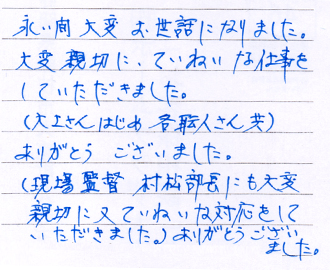 永い間 大変 お世話になりました。
大変 親切に、ていねいな仕事を
していただきました。
(大工さんはじめ 各職人さん共)
ありがとう ございました。
(現場監督 村松部長にも大変
親切に又ていねいな対応をして
いただきました。)ありがとうござい
ました。